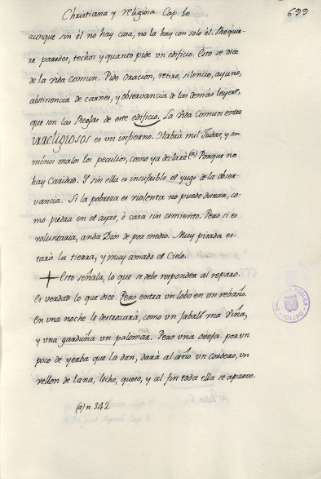 Christiana y religiosa Cap. 60
633
aunque sin èl no hay casa, no la hay con solo èl. Requie-
re paredes, techos y quanto pide un edificio. Esto se dice
de la vida comun. Pide oracion, retiro, silencio, ayuno,
abstinencia de carnes, y observancia de las demas leyes,
que son las Reglas de este edificio. La vida comun entre
vraeligiosos es un infierno. Habrà mil Judas, y
minus malos los peculios, como ya declarè (a) Porque no
hay caridad. Y sin ella es insufrible el yugo de la obser-
vancia. Si la pobreza es violenta no puede durar, co-
mo piedra en el ayre, ò casa sin cimiento. Pero si es
voluntaria, anda Dios de por medio. Muy pisada es-
tarà la tierra, y muy amado el Cielo.
+ Esto señala, lo que se debe responder al reparo.
Es verdad lo que dice. Pero entra un lobo en un rebaño.
En una noche le destruirà, como un Jabalì una Viña,
y una garduña un palomar. Pero una oveja por un
poco de yerba que la den, darà al año un cordero, un
vellon de lana, leche, queso, y al fin toda ella se aparte.
(a) n. 342